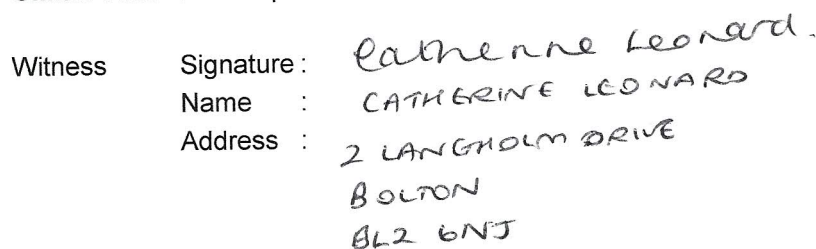 Witness Signature : Catherine Leonard.
Name : CATHERINE LEONARD
Address : 2 LANGHOLM DRIVE
BOLTON
BL2 6NJ